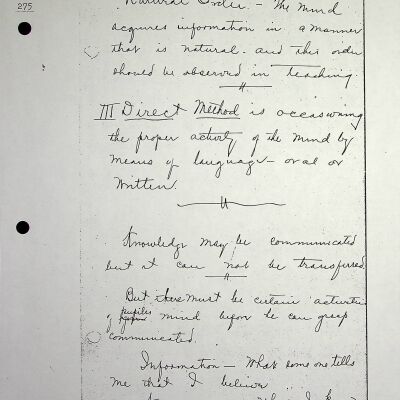 275
Natural Order. - The mind
acquires information in a manner
that is natural. and this order
should be observed in teaching.
III Direct Method is occasioning
the proper activity of the mind by
means of language - oral or
written.
Knowledge may be communicated
but it can not be transferred
But there must be certain activities
of pupiles mind before he can grasp
communicated.
Information - What some one tells
me that I believe